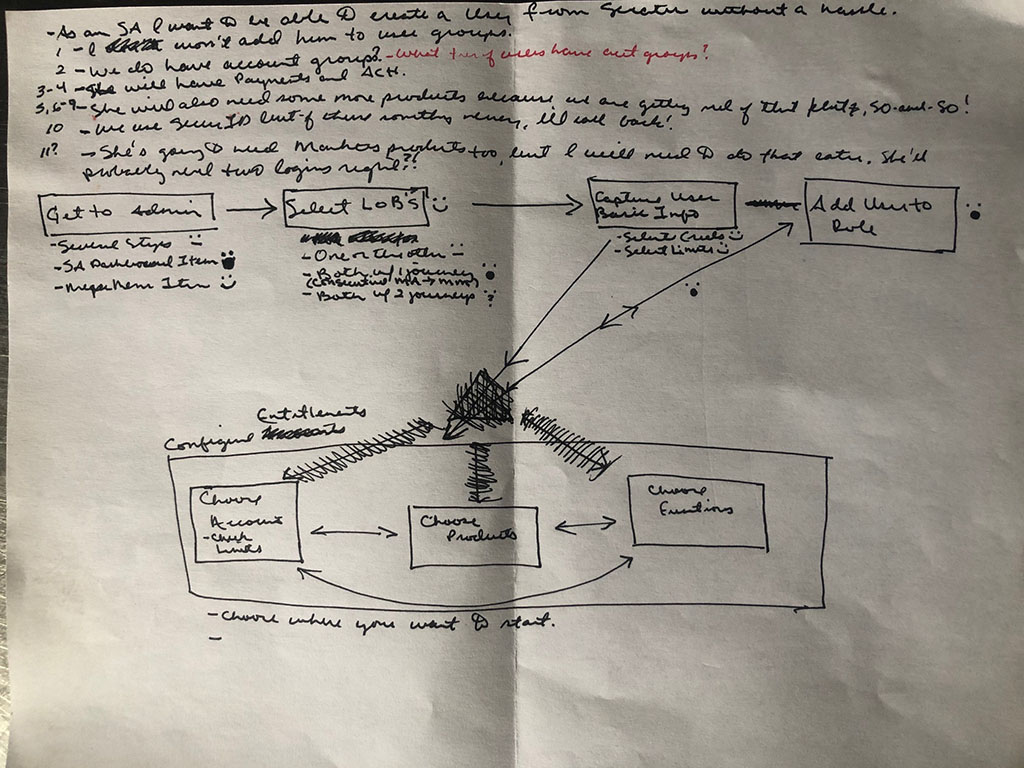 - As an SA I want to be able to create a User from without a hassle.
1 - I won't add him to user groups.
2 - We do have account groups? - What tier of users have acct groups?
3-4 - She will have Payments and ACH.
5, 6-9 - She will also need some more products because we are getting rid of that, so-and-so!
10 - We use SecurID but if there something, I'll call back!
11? - She's going to need Markets products too, but I will need to do that later. She'll
probably need two logins right?!
Get to Admin
Select LOB's
Capture User
Basic Info
Add User to
Role
- Several Steps
- SA Dashboard Item
- MegaMenu Item
- One or the other
- Both w/ 1 journey
(Consecutive → )
- Both w/ 2 journeys ?
- Select Creds
- Select Limits
Entitlements
Configure
Choose
Account
- Check
Limits
Choose
Products
Choose
Functions
- Choose where you want to start.
-